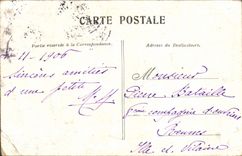 CARTE POSTALE
Partie réservée à la Correspondance.
Adresse du Destinataire.
11-1906
Sincères amitiés
d'une petite
M. H
Monsieur
Pierre Bataille
compagnie d'ouvriers
Rennes
Ille et Vilaine